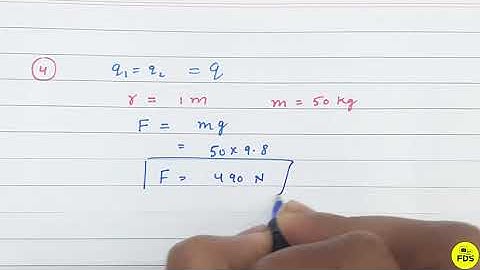 4 q₁ = q₂ = q
r = 1 m m = 50 kg
F = mg
= 50 × 9.8
F = 490 N
FDS